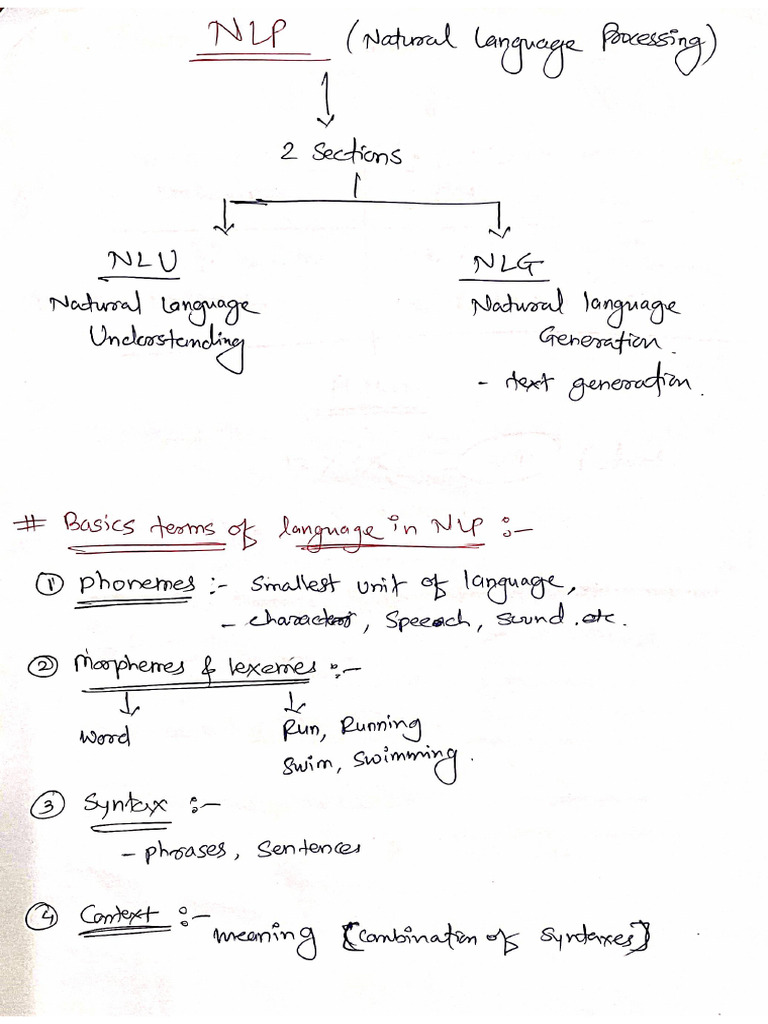 NLP (Natural Language Processing)
2 Sections
NLU NLG
Natural Language Natural language
Understanding Generation.
- text generation.
# Basics terms of language in NLP :-
① Phonemes :- Smallest unit of language,
- character, Speech, Sound. etc.
② Morphemes & Lexemes :-
word Run, Running
Swim, Swimming.
③ Syntax :-
- phrases, Sentences
④ Context :-
meaning [Combination of Syntaxes]